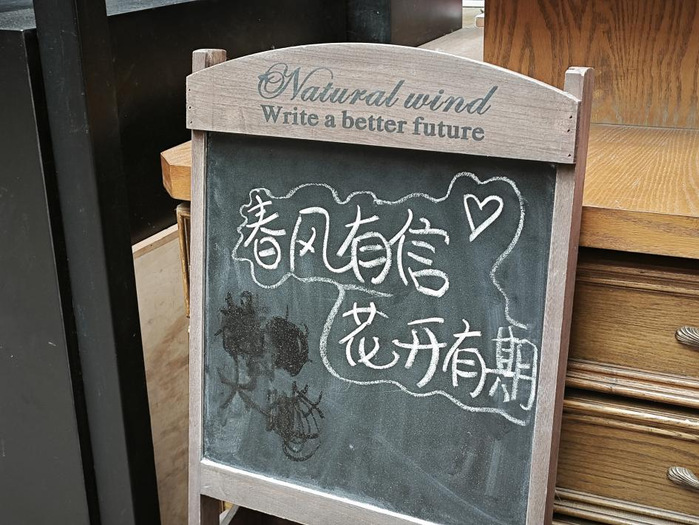 Natural wind
Write a better future
春风有信
花开有期